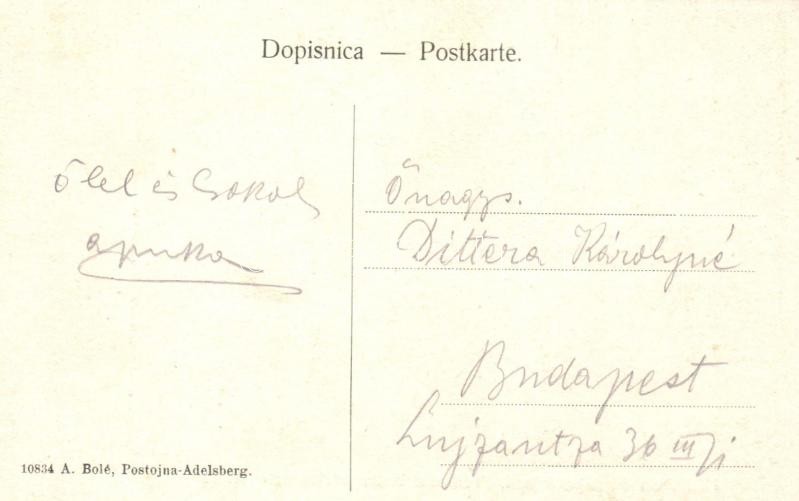 Dopisnica — Postkarte.
ölel és csokol
apuka
Őnagys.
Dittera Károlyné
Budapest
Lujzautza 36 III/i
10834 A. Bolé, Postojna-Adelsberg.